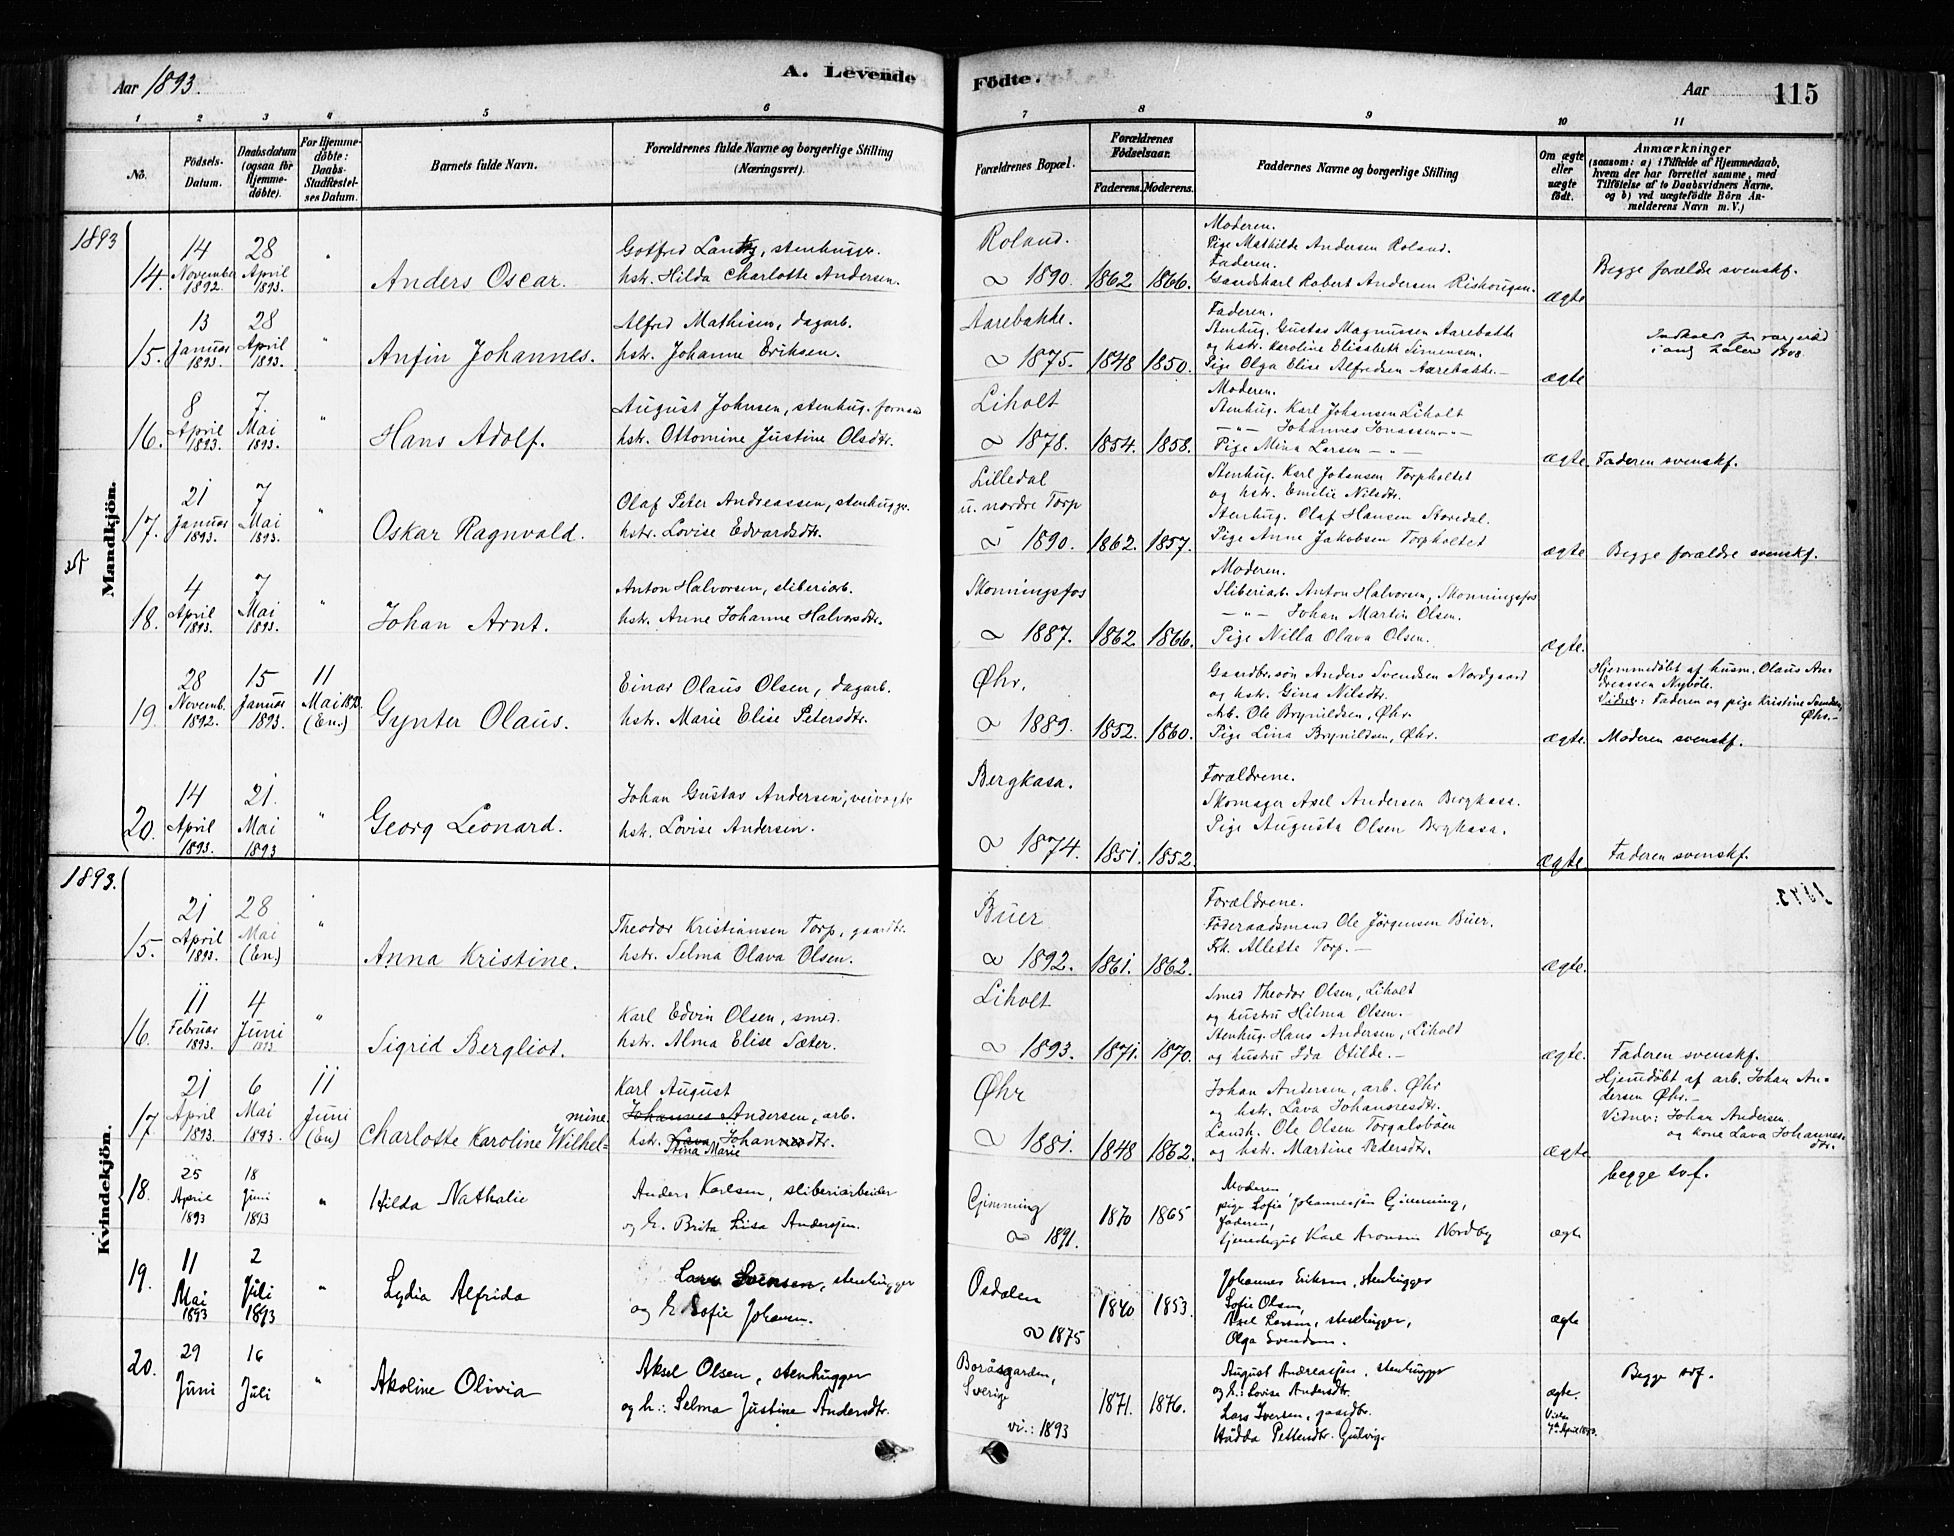 Aar 1893.
A. Levende
Födte.
Aar
115
1 2 3 4 5 6
7 8 9 10 11
No.
Födsels-
Datum.
Daabsdatum
(ogsaa for
Hjemme-
döbte).
For Hjemme-
döbte:
Daabs-
Stadfæstel-
ses Datum.
Barnets fulde Navn.
Forældrenes fulde Navne og borgerlige Stilling
(Næringsvei).
Forældrenes Bopæl.
Forældrenes
Födselsaar.
Faderens. Moderens.
Faddernes Navne og borgerlige Stilling
Om ægte
eller
uægte
födt.
Anmærkninger
(saasom: a) i Tilfælde af Hjemmedaab,
hvem der har forrettet samme, med
Tilföielse af to Daabsvidners Navne.
og b) ved uægtefödte Börn An-
melderens Navn m. V.)
Mandkjön.
1893
14.
14
November
1892.
28
April
1893.
"
Anders Oscar.
Gotfred, stenhugger.
hstr. Hilda Charlotte Andersen.
Roland.
1890.
1862
1866.
Moderen.
Pige Mathilde Andersen Roland.
Faderen.
Gaardskarl Robert Andersen
ægte
Begge forældre svenskf.
15.
13
Januar
1893.
28
April
1893.
"
Anfin Johannes.
Alfred Mathisen, dagarb.
hstr. Johanne Eriksen.
Aarebakke.
1875.
1848
1850.
Faderen.
Stenhug. Gustav Magnussen Aarebakke
og hstr. Karoline Elisabeth Simensen.
Pige Olga Elise Alfredsen Aarebakke.
ægte
16.
8
April
1893.
7
Mai
1893.
"
Hans Adolf.
August Johnsen, stenhug. formand
hstr. Ottomine Justine Olsdtr.
Liholt
1878.
1854.
1858.
Moderen.
Stenhug. Karl Johansen Liholt
— " — Johannes Jonassen — " —
Pige Mina Larsen — " —
ægte
Faderen svenskf.
17.
21
Januar
1893.
7
Mai
1893.
"
Oskar Ragnvald.
Olaf Peter Andreassen, stenhugge.
hstr. Lovise Edvardsdtr.
Lilledal
u. nordre Torp
1890.
1862.
1857.
Stenhug. Karl Johansen Torpholtet
og hstr. Emilie Nilsdtr.
Stenhug. Olaf Hansen Skoredal.
Pige Anne Jakobsen Torpholtet
ægte
Begge forældre svenskf.
18.
4
April
1893.
7
Mai
1893.
"
Johan Arnt.
Anton Halvorsen, sliberiarb.
hstr. Anne Johanne Halvorsdtr.
Skonningsfos
1887.
1862.
1866.
Moderen.
Sliberiarb. Anton Halvorsen, Skonningsfos
— " — Johan Martin Olsen.
Pige Nilla Olava Olsen.
ægte.
19.
28
Novemb.
1892.
15
Januar
1893.
11
Mai 1893.
(En.)
Gynter Olaus.
Einar Olaus Olsen, dagarb.
hstr. Marie Elise Petersdtr.
Øhr.
1889.
1852.
1860.
Gaardbr.søn Anders Svendsen Nordgaard
og hstr. Gina Nilsdtr.
Arb. Ole Brynildsen, Øhr.
Pige Lina Brynildsen, Øhr.
ægte.
Hjemmedøbt af husm. Olaus An-
dreassen Nybøle.
Vidner: Faderen og pige Kristine Svendsen
Øhr.—
Moderen svenskf.
20.
14
April
1893.
21.
Mai
1893
"
Georg Leonard.
Johan Gustav Andersen, veivogter
hstr. Lovise Andersen.
Bergkasa.
1874.
1851.
1852.
Forældrene.
Skomager Axel Andersen Bergkasa.
Pige Augusta Olsen Bergkasa.
ægte.
Faderen svenskf.
Kvindekjön.
1893.
15.
21
April
1893.
28
Mai
(En.)
"
Anna Kristine.
Theodor Kristiansen Torp, gaardbr.
hstr. Selma Olava Olsen.
Buer
1892.
1861.
1862.
Forældrene.
Föderaadsmand Ole Jørgensen Buer.
Frk. Allette Torp.—
ægte.
16.
11
Februar
1893.
4
Juni
1893.
"
Sigrid Bergliot.
Karl Edvin Olsen, smed.
hstr. Alma Elise Sæter.
Liholt
1893.
1871.
1870.
Smed Theodor Olsen, Liholt
og hustru Hilma Olsen.
Stenhug. Hans Andersen, Liholt
og hustru Ida Otilde.—
ægte.
Faderen svenskf.
17.
21
April
1893.
6
Mai
1893.
11
Juni
(En)
Charlotte Karoline Wilhel-
mine.
Karl August
Johannes Andersen, arb.
hstr. Lava Johannesdtr.
Stina Marie
Øhr
1881.
1848
1862.
Johan Andersen, arb. Øhr
og hstr. Lava Johannesdtr.
Landh. Ole Olsen Torgalsböen
og hstr. Martine Pedersdtr.
ægte
Hjemdøbt af arb. Johan An-
dersen Øhr.—
Vidner: Johan Andersen
og kone Lava Johannes-
dtr.
18.
25
April
1893
18
Juni
1893
"
Hilda Nathalie
Anders Karlsen, sliberiarbeider
og h. Brita Lisa Andersen.
Gjemming
1891.
1870
1865
Moderen
pige Sofie Johannessen Gjemming,
Faderen,
tjenestegut Karl Aronsen Nordby
ægte
begge svf.
19.
11
Mai
1893
2
Juli
1893
"
Lydia Alfrida
Lars Svensen, stenhugger
og h. Sofie Johansen.
Osdalen
1875
1840
1853.
Johannes Eriksen, stenhugger
Sofie Olsen,
Axel Larsen, stenhugger,
Olga Svendsen.
ægte
20.
29
Juni
16
Juli
"
Akoline Olivia
Aksel Olsen, stenhugger
og h.: Selma Justine Andersdtr.
Boråsgarden,
Sverige
vi.: 1893
1871.
1876.
August Andreassen, stenhugger
og h.: Lovise Andersdtr.
Lars Iversen, gaardbr.
Hädda Pettersdtr. Gulvig.
ægte.
Viede
7de April 1893.
Begge svf.